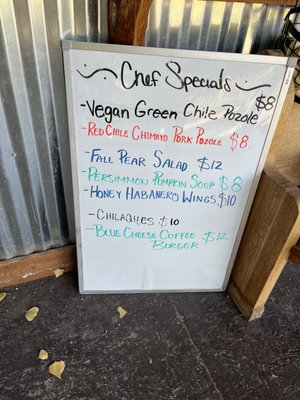 ~ Chef Specials ~
- Vegan Green Chile Pozole $8
- Red Chile Chimayo Pork Pozole $8
- Fall Pear Salad $12
- Persimmon Pumpkin Soup $8
- Honey Habanero Wings $10
- Chilaquiles $10
- Blue Cheese Coffee $12
Burger